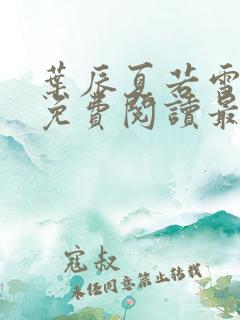 葉辰夏若雪
免費閱讀最
寇叔
未任同意禁止转载